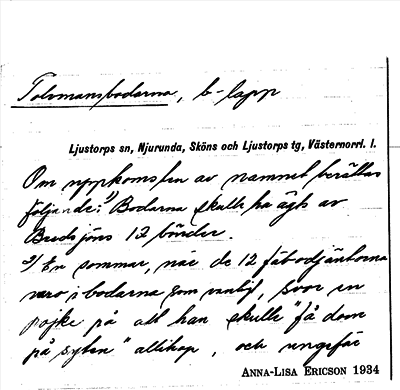 Tolvmansbodarna, b-lapp
Ljustorps sn, Njurunda, Sköns och Ljustorps tg, Västernorrl. l.
Om uppkomsten av namnet berättas
följande: 1) Bodarna skulle ha ägts av
Bredsjöns 12 bönder.
2) En sommar, när de 12 fäbodjäntorna
voro i bodarna som vanligt, svor en
pojke på att han skulle "få dom
på syten" allihop, och ungefär
ANNA-LISA ERICSON 1934